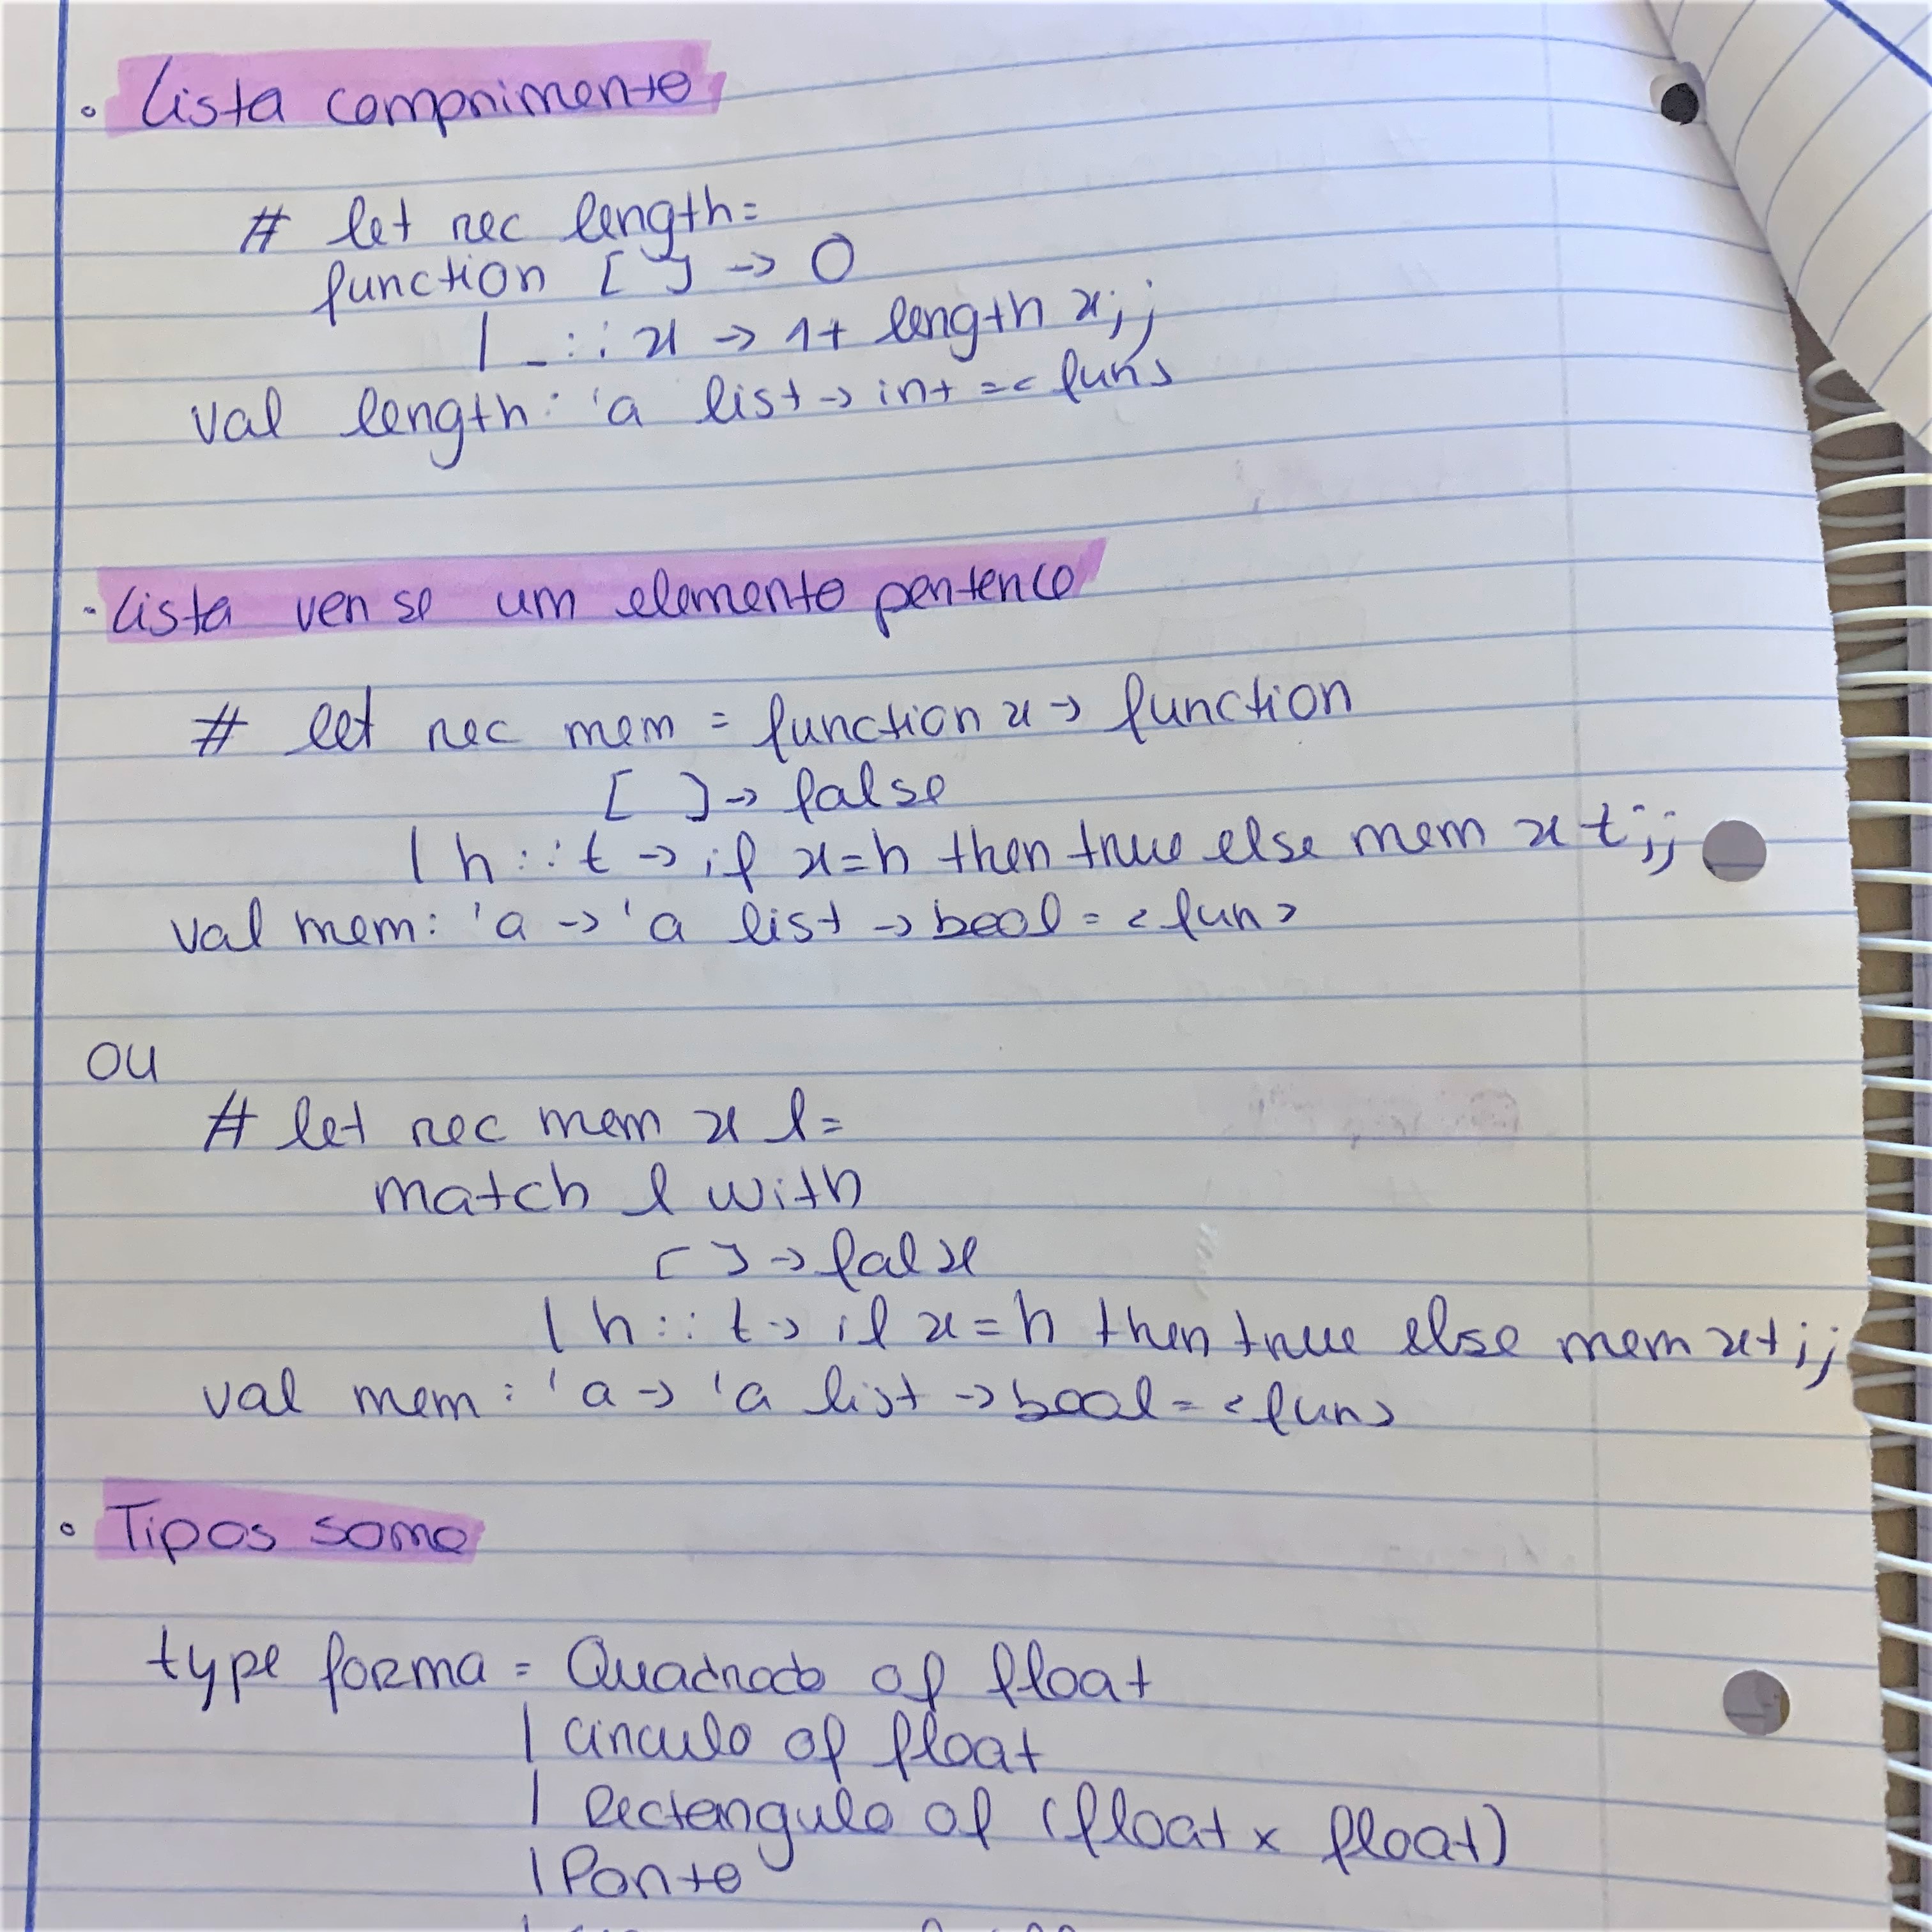 • Lista comprimento
# let rec length=
function [ ] -> 0
| _::x -> 1+ length x;;
val length: 'a list -> int =< fun>
• Lista ver se um elemento pertence
# let rec mem = function x -> function
[ ] -> false
| h::t -> if x=h then true else mem x t;;
val mem: 'a -> 'a list -> bool = < fun >
ou
# let rec mem x l=
match l with
[ ] -> false
| h::t -> if x = h then true else mem x t;;
val mem: 'a -> 'a list -> bool = < fun>
• Tipos soma
type forma = Quadrado of float
| circulo of float
| Rectangulo of (float x float)
| Ponto